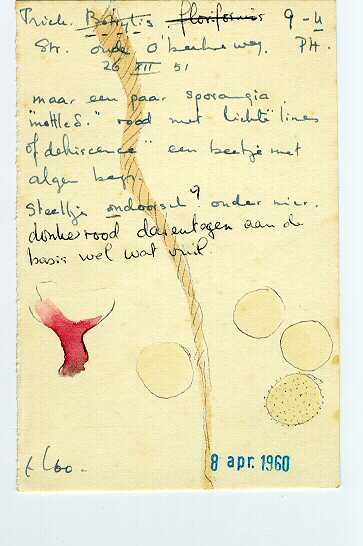 Trich. Botrytis floriformis 9-4
Str. oude weg. PH.
26 XII 51
maar een paar sporangia
"mottled." rood met lichte "lines
of dehiscence" een beetje met
algen
Steeltje ondoorsch? onder micr.
donkerrood daarentegen aan de
basis wel wat vuil.
8 apr. 1960